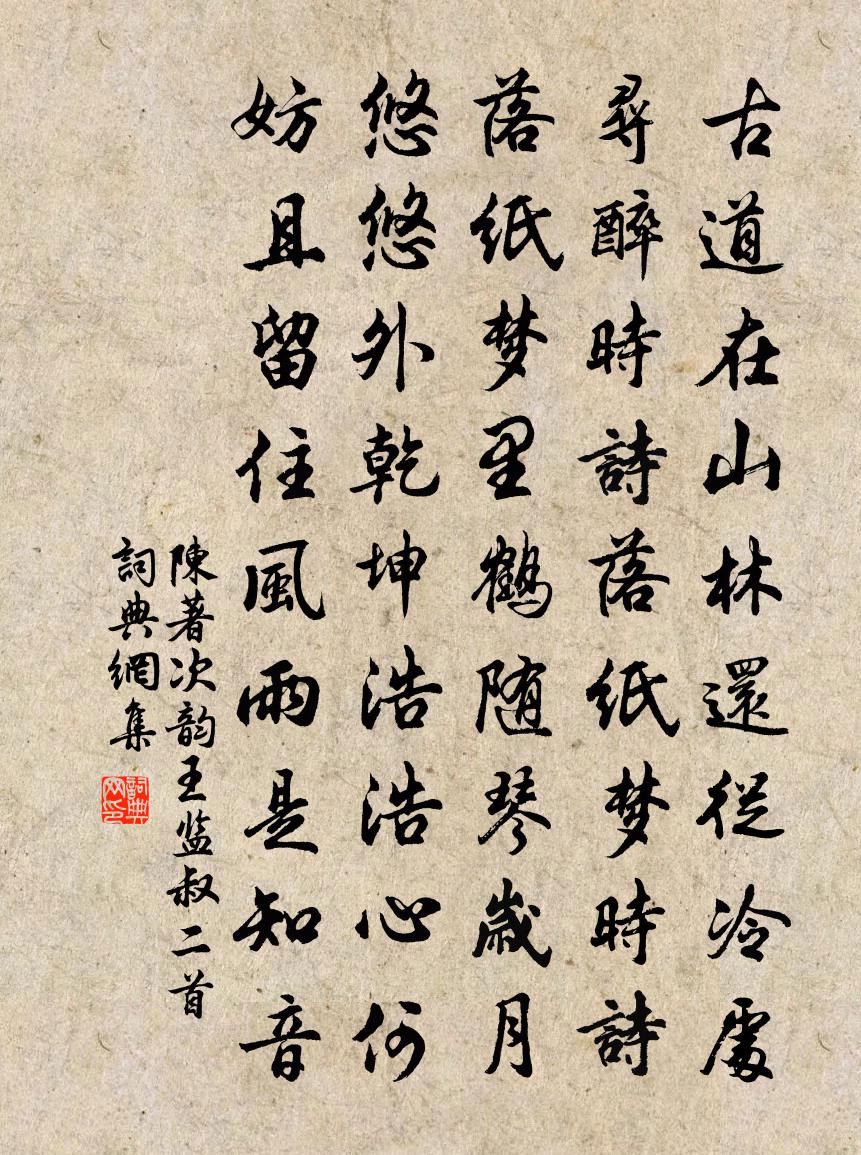 古道在山林還從冷處
尋醉時詩落紙梦時詩
落紙梦里鶴随琴歲月
悠悠外乾坤浩浩心何
妨且留住風雨是知音
陳著次韵王监叔二首
詞典網集
詞典网印